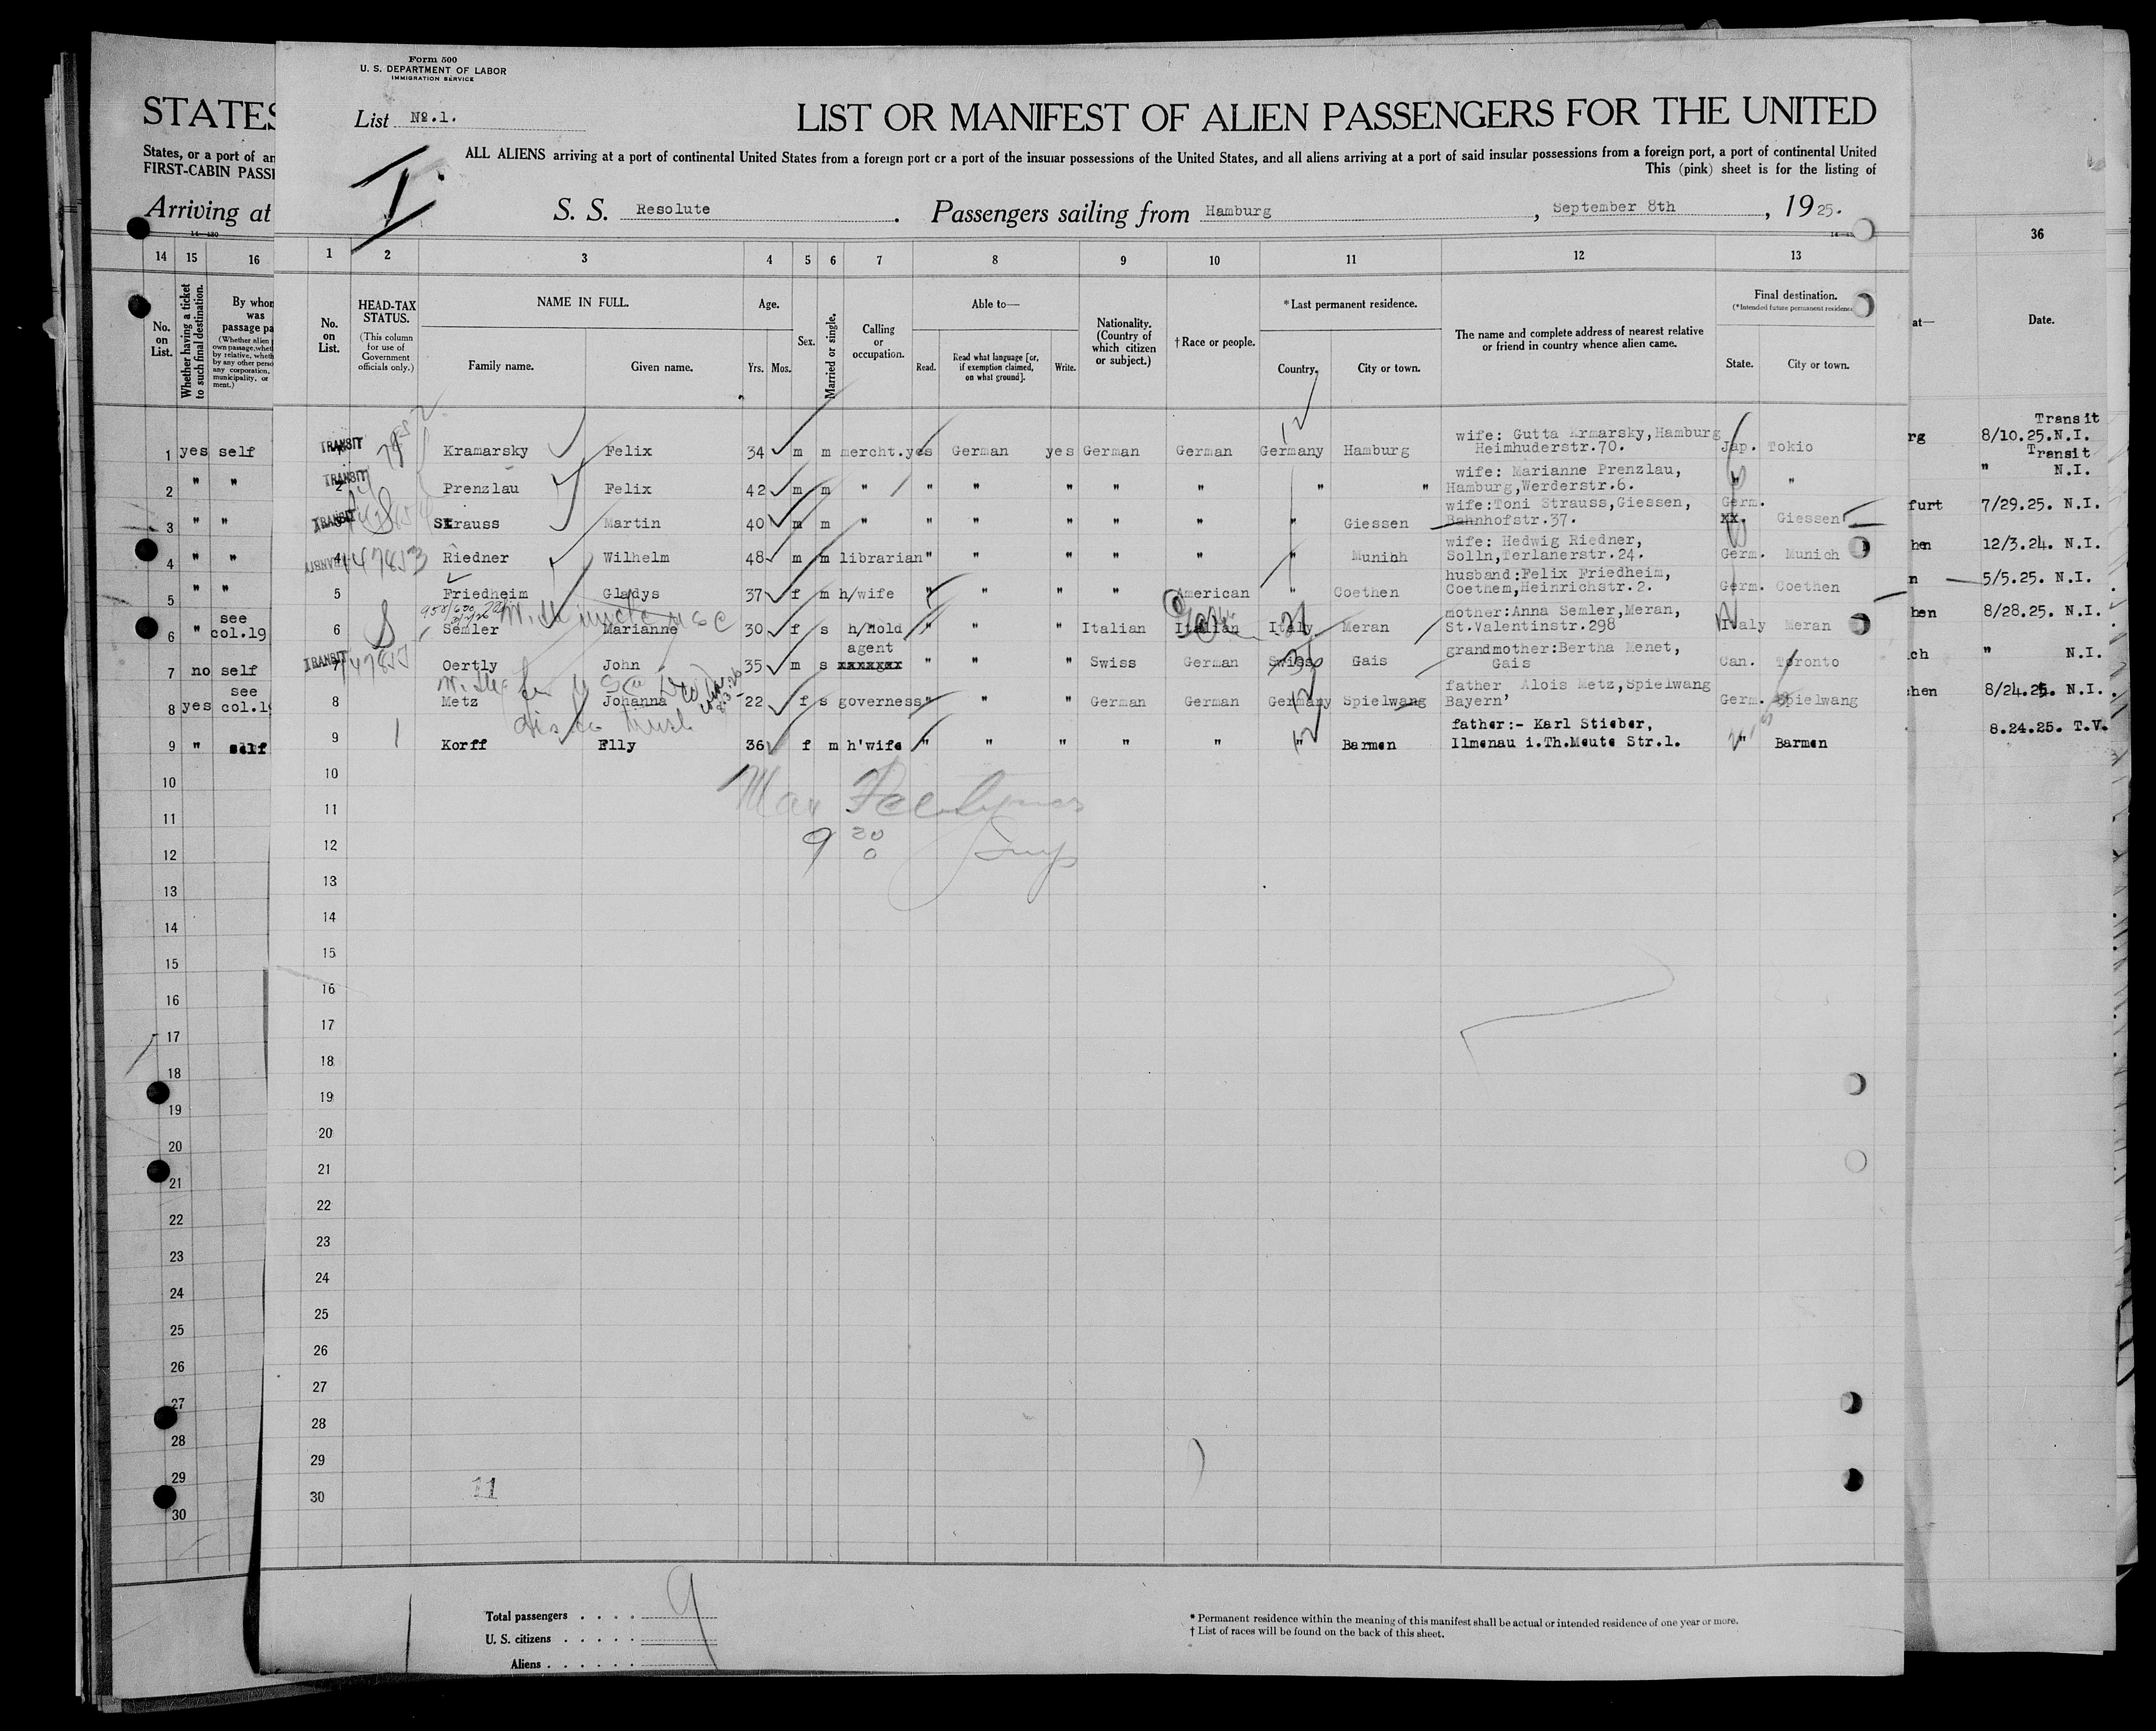 Form 500
U. S. DEPARTMENT OF LABOR
IMMIGRATION SERVICE
STATES
List No.1.
LIST OR MANIFEST OF ALIEN PASSENGERS FOR THE UNITED
States, or a port of
FIRST-CABIN
ALL ALIENS arriving at a port of continental United States from a foreign port or a port of the insular possessions of the United States, and all aliens arriving at a port of said insular possessions from a foreign port, a port of continental United
This (pink) sheet is for the listing of
I
Arriving at
S. S. Resolute . Passengers sailing from Hamburg , September 8th , 1925.
14 15 16 1 2 3 4 5 6 7 8 9 10 11 12 13 36
No. on List.
Whether having a ticket to such final destination.
By whom was passage
No. on List.
HEAD-TAX STATUS.
(This column for use of Government officials only.)
NAME IN FULL.
Family name. Given name.
Age.
Yrs. Mos.
Sex.
Married or single.
Calling or occupation.
Able to—
Read. Read what language [or, if exemption claimed, on what ground]. Write.
Nationality. (Country of which citizen or subject.)
† Race or people.
* Last permanent residence.
Country. City or town.
The name and complete address of nearest relative or friend in country whence alien came.
Final destination.
(* Intended future permanent residence
State. City or town.
at—
Date.
1 yes self TRANSIT Kramarsky Felix 34 m m mercht. yes German yes German German Germany Hamburg wife: Gutta Krmarsky,Hamburg Heimhuderstr.70. Jap. Tokio Transit 8/10.25.N.I.
2 " " TRANSIT 2 Prenzlau Felix 42 m m " " " " " " " " wife: Marianne Prenzlau, Hamburg,Werderstr.6. " " Transit " N.I.
3 " " TRANSIT Strauss Martin 40 m m " " " " " " " Giessen wife:Toni Strauss,Giessen, Bahnhofstr.37. Germ. xx. Giessen furt 7/29.25. N.I.
4 " " TRANSIT 4 147853 Riedner Wilhelm 48 m m librarian " " " " " " Munich wife: Hedwig Riedner, Solln,Terlanerstr.24. Germ. Munich hen 12/3.24. N.I.
5 " " 5 Friedheim Gladys 37 f m h/wife " " " " American " Coethen husband:Felix Friedheim, Coethem,Heinrichstr.2. Germ. Coethen n 5/5.25. N.I.
6 " see col.19 6 S Semler Marianne 30 f s h/hold " " " Italian Italian Italy Meran mother:Anna Semler,Meran, St.Valentinstr.298 Italy Meran hen 8/28.25. N.I.
7 no self TRANSIT 7 Oertly John 35 m s agent xxxxxxx " " " Swiss German Swiss Gais grandmother:Bertha Menet, Gais Can. Toronto ch " N.I.
8 yes see col.19 8 Metz Johanna 22 f s governess " " " German German Germany Spielwang father Alois Metz,Spielwang Bayern' Germ. Spielwang hen 8/24.25. N.I.
9 " self 9 1 Korff Elly 36 f m h'wife " " " " " " Barmen father:- Karl Stieber, Ilmenau i.Th.Meute Str.1. " Barmen 8.24.25. T.V.
10 10
11 11
12 12
13 13
14 14
15 15
16 16
17 17
18 18
19 19
20 20
21 21
22 22
23 23
24 24
25 25
26 26
27 27
28 28
29 29
30 30
11
Total passengers . . . . 9
U. S. citizens . . . . .
Aliens . . . . . .
* Permanent residence within the meaning of this manifest shall be actual or intended residence of one year or more.
† List of races will be found on the back of this sheet.